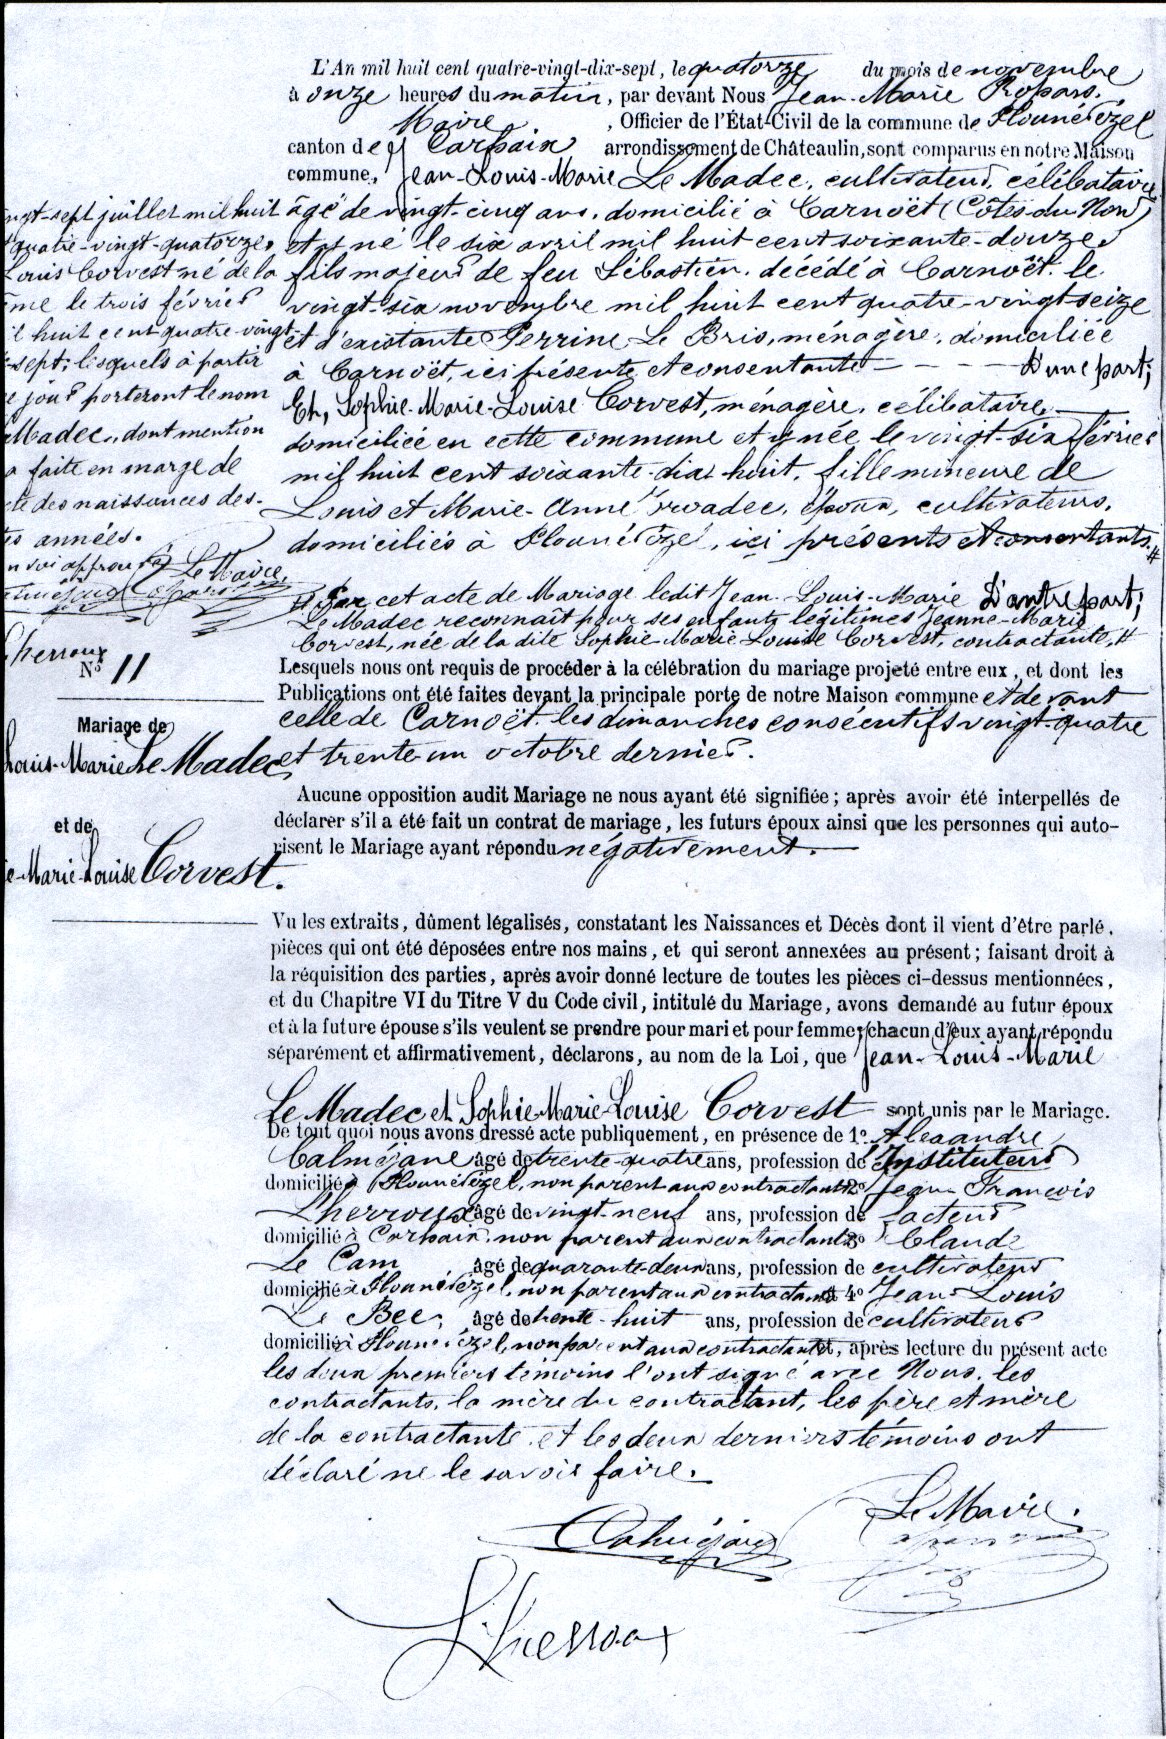 L'An mil huit cent quatre-vingt-dix-sept, le quatorze du mois de novembre
à onze heures du matin, par devant Nous Jean-Marie Ropars,
Maire, Officier de l'État-Civil de la commune de Plounévézel
canton de Carhaix arrondissement de Châteaulin, sont comparus en notre Maison
commune, Jean-Louis-Marie Le Madec, cultivateur, célibataire
âgé de vingt-cinq ans, domicilié à Carnoët (Côtes-du-Nord)
et y né le six avril mil huit cent soixante-douze,
fils majeur de feu Sébastien, décédé à Carnoët, le
vingt-six novembre mil huit cent quatre-vingt-seize
et d'existante Perrine Le Bris, ménagère, domiciliée
à Carnoët, ici présente et consentante - - - - D'une part;
Et, Sophie-Marie-Louise Corvest, ménagère, célibataire,
domiciliée en cette commune et y née le vingt-six février
mil huit cent soixante-dix huit, fille mineure de
Louis et Marie-Anne époux, cultivateurs,
domiciliés à Plounévézel, ici présents et consentants. #
D'autre part;
# Par cet acte de Mariage ledit Jean-Louis-Marie
Le Madec reconnaît pour ses enfants légitimes Jeanne-Marie
Corvest, née de la dite Sophie-Marie-Louise Corvest, contractante, #
ngt-sept juillet mil huit
quatre-vingt-quatorze,
Louis Corvest né de la
me le trois février
il huit cent quatre-vingt-
-sept; lesquels à partir
e jour porteront le nom
Madec, dont mention
a faite en marge de
cte des naissances des-
ts années.
n voi approuvé
Le Maire,
Lherroux
N° 11
Lesquels nous ont requis de procéder à la célébration du mariage projeté entre eux, et dont les
Publications ont été faites devant la principale porte de notre Maison commune et devant
celle de Carnoët, les dimanches consécutifs vingt-quatre
et trente-un octobre dernier.
Mariage de
Louis-Marie Le Madec
et de
e-Marie-Louise Corvest.
Aucune opposition audit Mariage ne nous ayant été signifiée; après avoir été interpellés de
déclarer s'il a été fait un contrat de mariage, les futurs époux ainsi que les personnes qui auto-
risent le Mariage ayant répondu négativement.
Vu les extraits, dûment légalisés, constatant les Naissances et Décès dont il vient d'être parlé,
pièces qui ont été déposées entre nos mains, et qui seront annexées au présent; faisant droit à
la réquisition des parties, après avoir donné lecture de toutes les pièces ci-dessus mentionnées,
et du Chapitre VI du Titre V du Code civil, intitulé du Mariage, avons demandé au futur époux
et à la future épouse s'ils veulent se prendre pour mari et pour femme; chacun d'eux ayant répondu
séparément et affirmativement, déclarons, au nom de la Loi, que Jean-Louis-Marie
Le Madec et Sophie-Marie-Louise Corvest sont unis par le Mariage.
De tout quoi nous avons dressé acte publiquement, en présence de 1° Alexandre
Calméjane âgé de trente-quatre ans, profession de Instituteur
domicilié à Plounévézel, non parent aux contractants 2° Jean François
Lherroux âgé de vingt-neuf ans, profession de facteur
domicilié à Carhaix, non parent aux contractants 3° Claude
Le Cam âgé de quarante-deux ans, profession de cultivateur
domicilié à Plounévézel, non parent aux contractants 4° Jean-Louis
Le Bec, âgé de trente-huit ans, profession de cultivateur
domicilié à Plounévézel, non parent aux contractants et, après lecture du présent acte
les deux premiers témoins l'ont signé avec Nous, les
contractants, la mère du contractant, les père et mère
de la contractante et les deux derniers témoins ont
déclaré ne le savoir faire.
Le Maire,
Calméjane
Lherroux